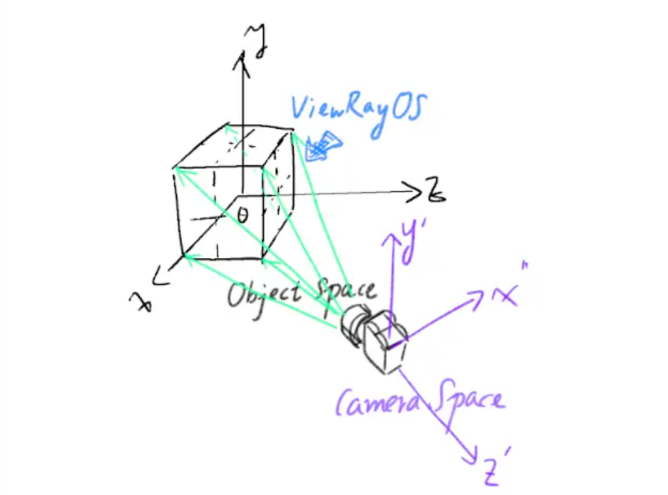 y
ViewRayOS
z
O
x
Object Space
y'
x"
Camera Space
z'